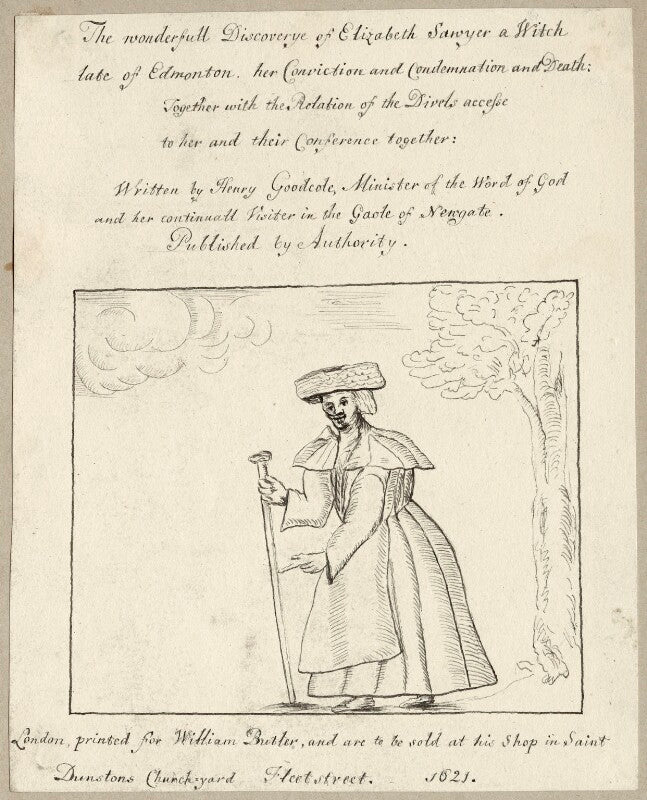 The wonderfull Discoverye of Elizabeth Sawyer a Witch
late of Edmonton. her Conviction and Condemnation and Death:
Together with the Relation of the Divels accesse
to her and their Conference together:
Written by Henry Goodcole, Minister of the Word of God
and her continuall Visiter in the Gaole of Newgate.
Published by Authority.
London, printed for William Butler, and are to be sold at his Shop in Saint
Dunstons Church-yard Fleetstreet. 1621.